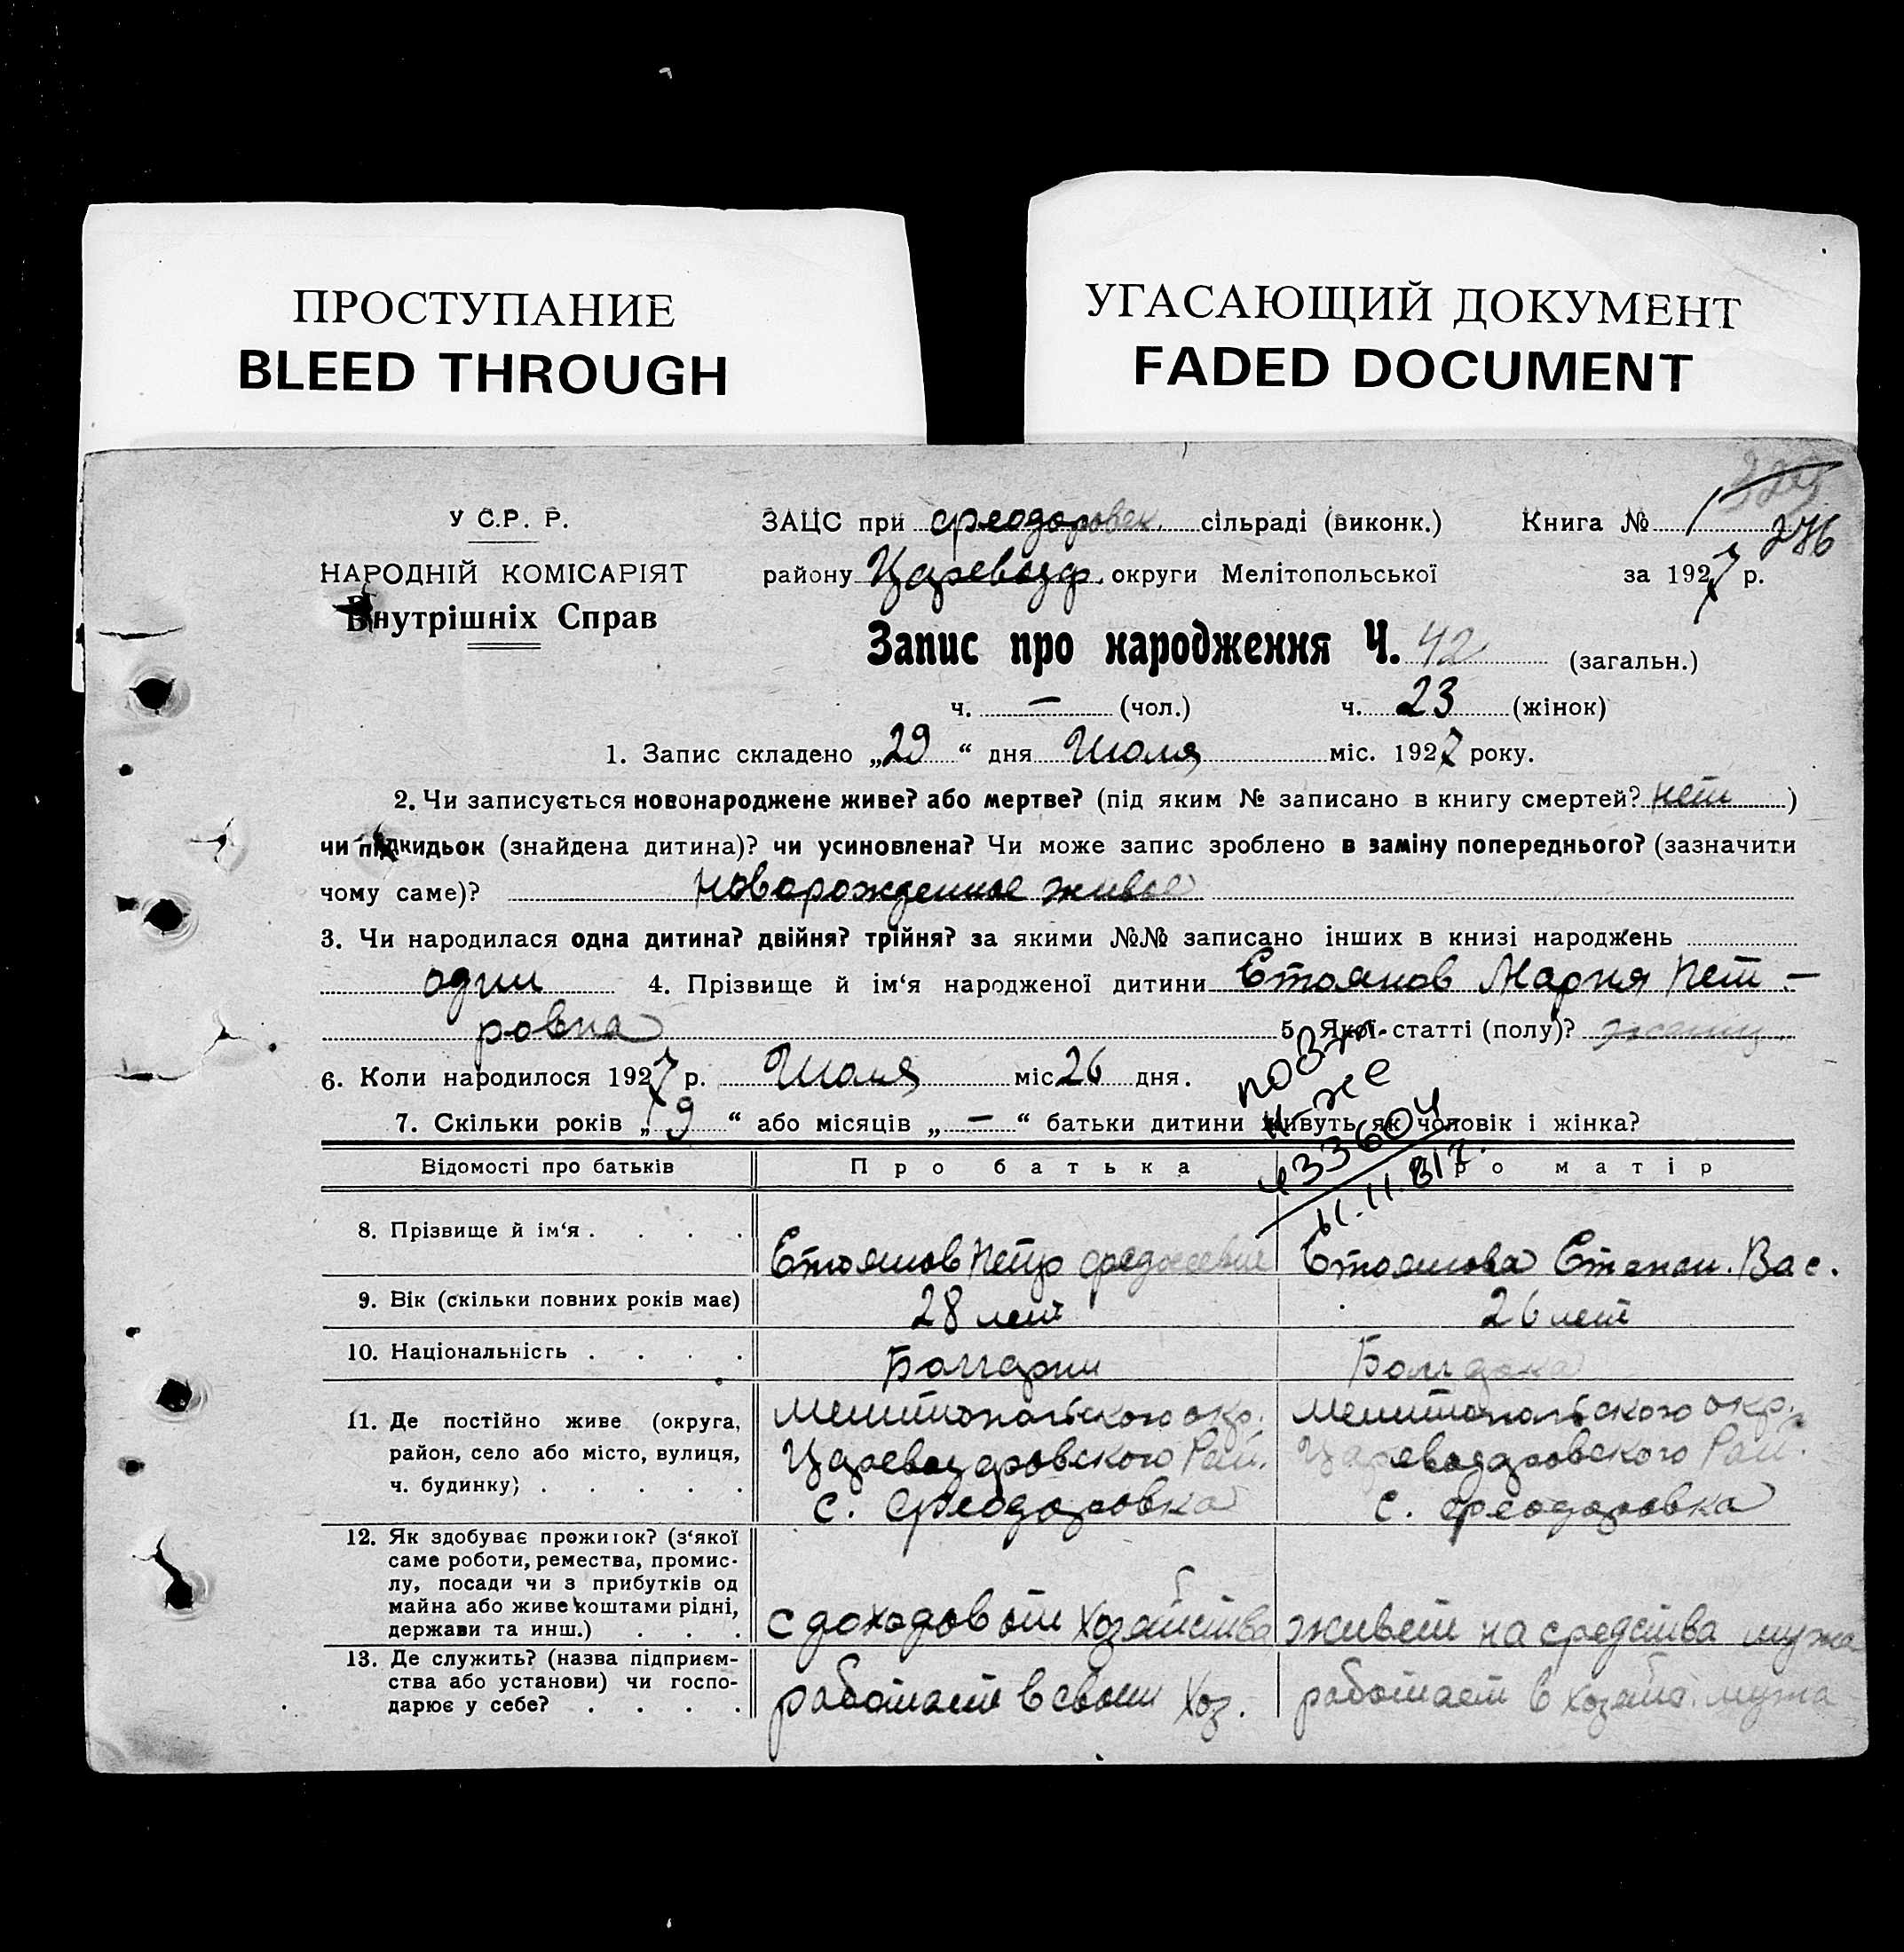 ПРОСТУПАНИЕ
BLEED THROUGH
УГАСАЮЩИЙ ДОКУМЕНТ
FADED DOCUMENT
276
У С.Р. Р.
НАРОДНІЙ КОМІСАРІЯТ
Внутрішніх Справ
ЗАЦС при Феодоровск. сільраді (виконк.) Книга № 1
району Цареводр. округи Мелітопольської за 1927 р.
Запис про народження Ч. 42 (загальн.)
ч. — (чол.) ч. 23 (жінок)
1. Запис складено „29“ дня Июля міс. 1927 року.
2. Чи записується новонароджене живе? або мертве? (під яким № записано в книгу смертей? нет)
чи підкидьок (знайдена дитина)? чи усиновлена? Чи може запис зроблено в заміну попереднього? (зазначити
чому саме)? новорожденное живое
3. Чи народилася одна дитина? двійня? трійня? за якими №№ записано інших в книзі народжень
один 4. Прізвище й ім‘я народженої дитини Стоянов Мария Пет-
ровна 5. Якої статті (полу)?
6. Коли народилося 1927 р. Июля міс 26 дня.
7. Скільки років „9“ або місяців „—“ батьки дитини живуть як чоловік і жінка?
Відомості про батьків Про батька Про матір
8. Прізвище й ім‘я . . . . Стоянов Петр Стоянова Степан. Вас.
9. Вік (скільки повних років має) 28 лет 26 лет
10. Національність . . . . Болгарин Болгарка
11. Де постійно живе (округа, Мелитопольского окр. Мелитопольского окр.
район, село або місто, вулиця, Цареводаровского Рай. Цареводаровского Рай.
ч. будинку) . . . . . с. Феодоровка с. Феодоровка
12. Як здобуває прожиток? (з‘якої
саме роботи, ремества, промис-
лу, посади чи з прибутків од
майна або живе коштами рідні,
держави та инш.) . . . с доходов от хозяйства живет на средства мужа
13. Де служить? (назва підприєм-
ства або установи) чи госпо-
дарює у себе? . . . . работает в своем хоз. работает в хозяйс. мужа